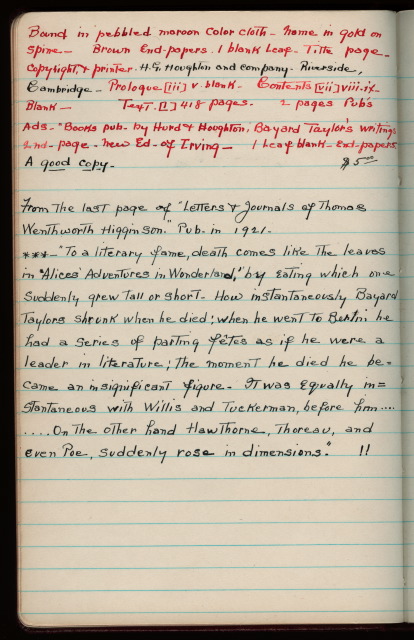 Bound in pebbled maroon color cloth - name in gold on
spine - Brown End-papers. 1 blank Leaf - Title page -
Copyright, & printer. H.O. Houghton and Company. Riverside,
Cambridge - Prologue [iii] v. blank - Contents [vii] viii-ix -
Blank - Text. [1] 418 pages. 2 pages Pub's
Ads - "Books pub. by Hurd & Houghton, Bayard Taylor's writings
2nd - page - New Ed - of Irving - 1 Leaf blank - End-papers
A good copy. $5.00
From the last page of "Letters & Journals of Thomas
Wentworth Higginson." Pub. in 1921 -
*** - "To a literary fame, death comes like the leaves
in "Alices' Adventures in Wonderland," by eating which one
suddenly grew tall or short - How instantaneously Bayard
Taylors shrunk when he died; when he went to Berlin he
had a series of parting fêtes as if he were a
leader in literature; the moment he died he be-
came an insignificant figure - It was equally in=
stantaneous with Willis and Tuckerman, before him....
....On the other hand Hawthorne, Thoreau, and
even Poe, suddenly rose in dimensions." !!